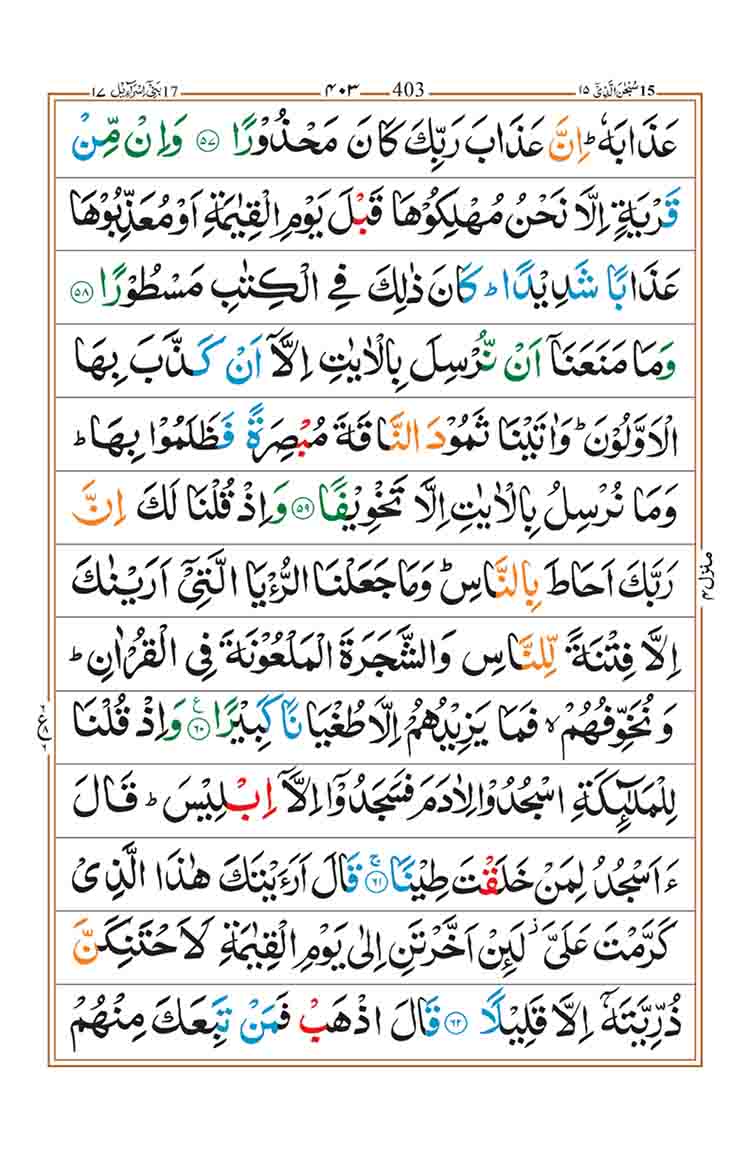 15 سُبْحٰنَ الَّذِیْۤ ۱۵ 403 ۴۰۳ 17 بَنِیْۤ اِسْرَآءِیْل ۱۷
عَذَابَهٗ ؕ اِنَّ عَذَابَ رَبِّكَ كَانَ مَحْذُوْرًا ۝۵۷ وَ اِنْ مِّنْ
قَرْیَةٍ اِلَّا نَحْنُ مُهْلِكُوْهَا قَبْلَ یَوْمِ الْقِیٰمَةِ اَوْ مُعَذِّبُوْهَا
عَذَابًا شَدِیْدًا ؕ كَانَ ذٰلِكَ فِی الْكِتٰبِ مَسْطُوْرًا ۝۵۸
وَ مَا مَنَعَنَاۤ اَنْ نُّرْسِلَ بِالْاٰیٰتِ اِلَّاۤ اَنْ كَذَّبَ بِهَا
الْاَوَّلُوْنَ ؕ وَ اٰتَیْنَا ثَمُوْدَ النَّاقَةَ مُبْصِرَةً فَظَلَمُوْا بِهَا ؕ
وَ مَا نُرْسِلُ بِالْاٰیٰتِ اِلَّا تَخْوِیْفًا ۝۵۹ وَ اِذْ قُلْنَا لَكَ اِنَّ
رَبَّكَ اَحَاطَ بِالنَّاسِ ؕ وَ مَا جَعَلْنَا الرُّءْیَا الَّتِیْۤ اَرَیْنٰكَ
اِلَّا فِتْنَةً لِّلنَّاسِ وَ الشَّجَرَةَ الْمَلْعُوْنَةَ فِی الْقُرْاٰنِ ؕ
وَ نُخَوِّفُهُمْ ۙ فَمَا یَزِیْدُهُمْ اِلَّا طُغْیَانًا كَبِیْرًا ۝۶۰ ع وَ اِذْ قُلْنَا
لِلْمَلٰٓىِٕكَةِ اسْجُدُوْا لِاٰدَمَ فَسَجَدُوْۤا اِلَّاۤ اِبْلِیْسَ ؕ قَالَ
ءَاَسْجُدُ لِمَنْ خَلَقْتَ طِیْنًا ۝۶۱ ۚ قَالَ اَرَءَیْتَكَ هٰذَا الَّذِیْ
كَرَّمْتَ عَلَیَّ ؗ لَىِٕنْ اَخَّرْتَنِ اِلٰى یَوْمِ الْقِیٰمَةِ لَاَحْتَنِكَنَّ
ذُرِّیَّتَهٗۤ اِلَّا قَلِیْلًا ۝۶۲ قَالَ اذْهَبْ فَمَنْ تَبِعَكَ مِنْهُمْ
منزل ۴
ع ۸